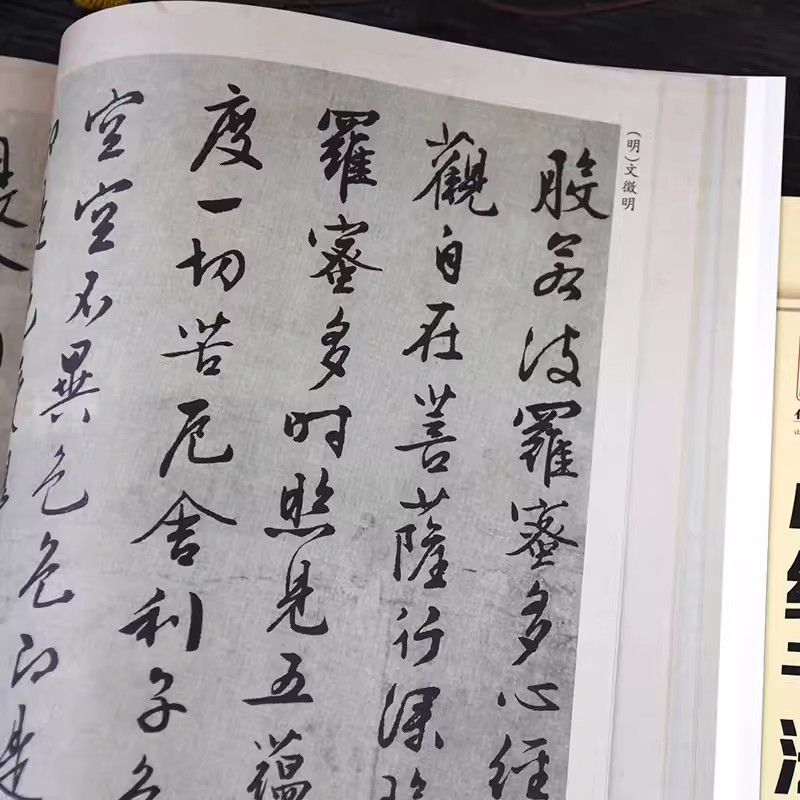 （明）文徵明
般若波羅蜜多心經
觀自在菩薩行深般
羅蜜多时照見五蘊
度一切苦厄舍利子色
空空不異色色即是